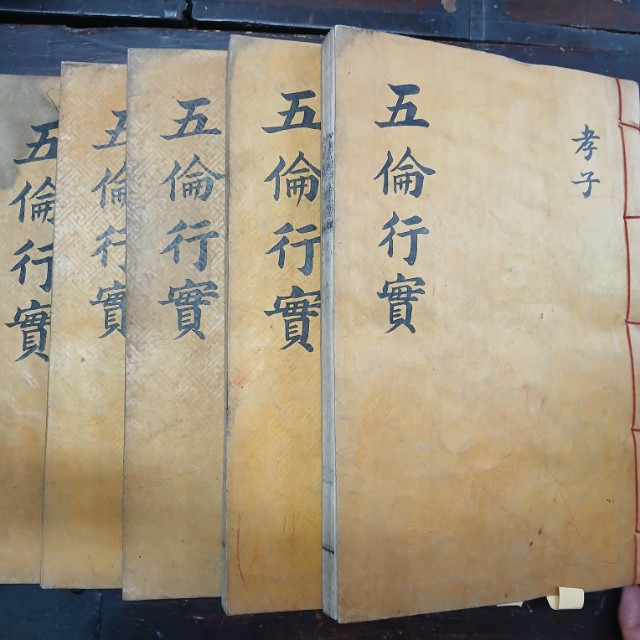 五倫行實
孝子
五倫行實
五倫行實
五倫行實
五倫行實